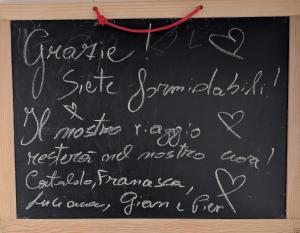 Grazie!
Siete formidabili!
Il nostro viaggio
resterà nel nostro cuore!
Cataldo, Francesca,
Luciana, Gian e Pier